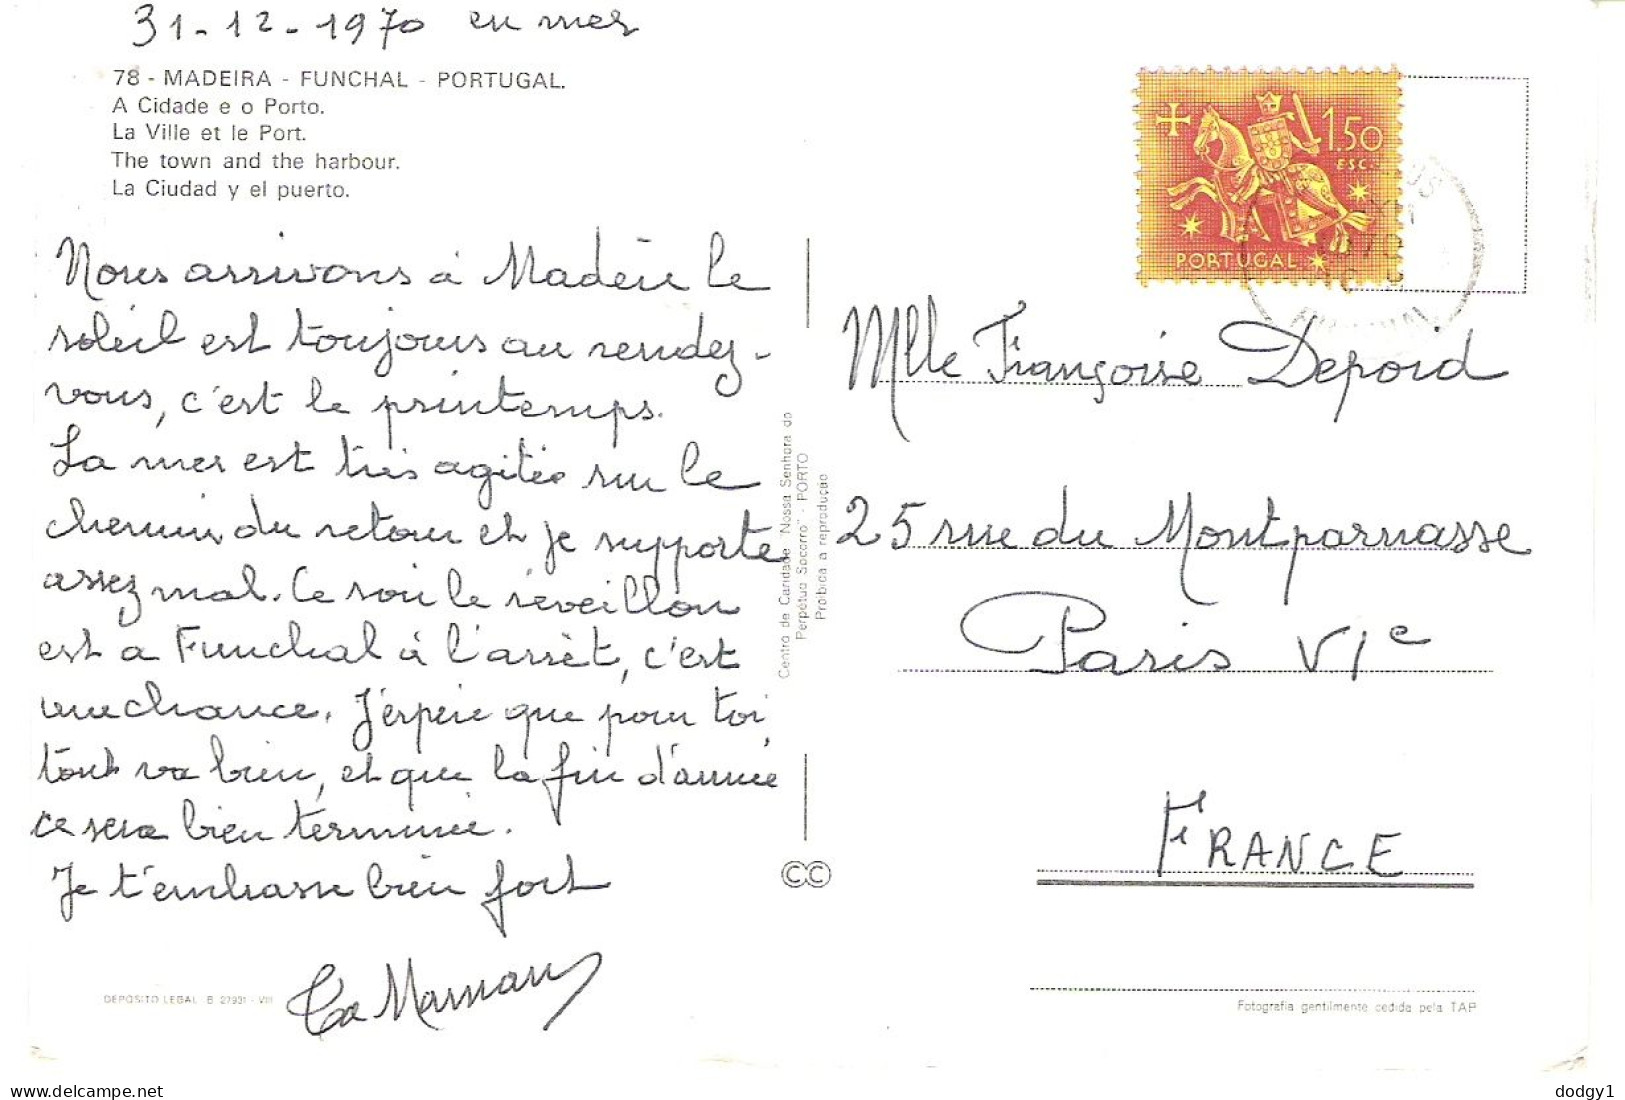 31-12-1970 en mer
78 - MADEIRA - FUNCHAL - PORTUGAL.
A Cidade e o Porto.
La Ville et le Port.
The town and the harbour.
La Ciudad y el puerto.
Nous arrivons à Madère le
soleil est toujours au rendez-
vous, c'est le printemps.
La mer est très agitée sur le
chemin du retour et je supporte
assez mal. Ce soir le réveillon
est a Funchal à l'arrêt, c'est
une chance. J'espère que pour toi,
tout va bien, et que la fin d'année
ce sera bien terminée.
Je t'embrasse bien fort
Ta Maman
DEPOSITO LEGAL B 27931 - VIII
Centro de Caridade "Nossa Senhora do
Perpétuo Socorro" - PORTO
Proibida a reprodução
CC
1.50
ESC.
PORTUGAL
Mlle Françoise Depoid
25 rue du Montparnasse
Paris VIe
FRANCE
Fotografia gentilmente cedida pela TAP
dodgy1